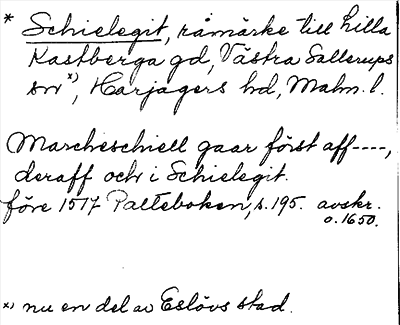 * Schielegit, råmärke till Lilla
Kastberga gd, Västra Sallerups
sn*), Harjagers hd, Malm. l.
Marcheschiell gaar först aff----,
deraff och i Schielegit.
före 1517 Palteboken, s. 195. avskr.
o. 1650.
*) nu en del av Eslövs stad.